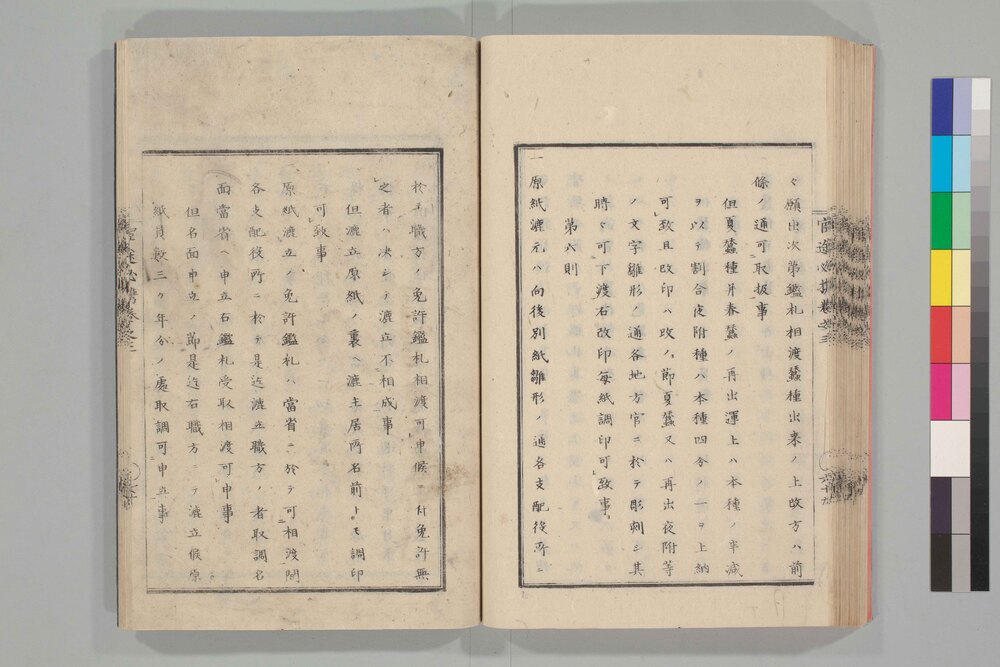 々願出次第鑑札相渡蠶種出来ノ上改方ハ前
條ノ通可取扱事
但夏蠶種幷春蠶ノ再出運上ハ本種ノ半減
ヲ以テ割合夜附種ハ本種四分ノ一ヲ上納
可致且改印ハ改ノ節夏蠶又ハ再出夜附等
ノ文字雛形ノ通各地方官ニ於テ彫刻シ其
時々可下渡右改印毎紙調印可致事
第六則
一原紙漉元ハ向後別紙雛形ノ通各支配役所
於テ職方ノ免許鑑札相渡可申候ニ付免許無
之者ハ決シテ漉立不相成事
但漉立原紙ノ裏ヘ漉主居所名前トモ調印
可致事
一原紙漉立ノ免許鑑札ハ當省ニ於テ可相渡間
各支配役所ニ於テ是迄漉立職方ノ者取調名
面當省ヘ申立右鑑札受取相渡可申事
但名面申立ノ節是迄右職方ニテ漉立候原
紙員數三ケ年分ノ處取調可申立事